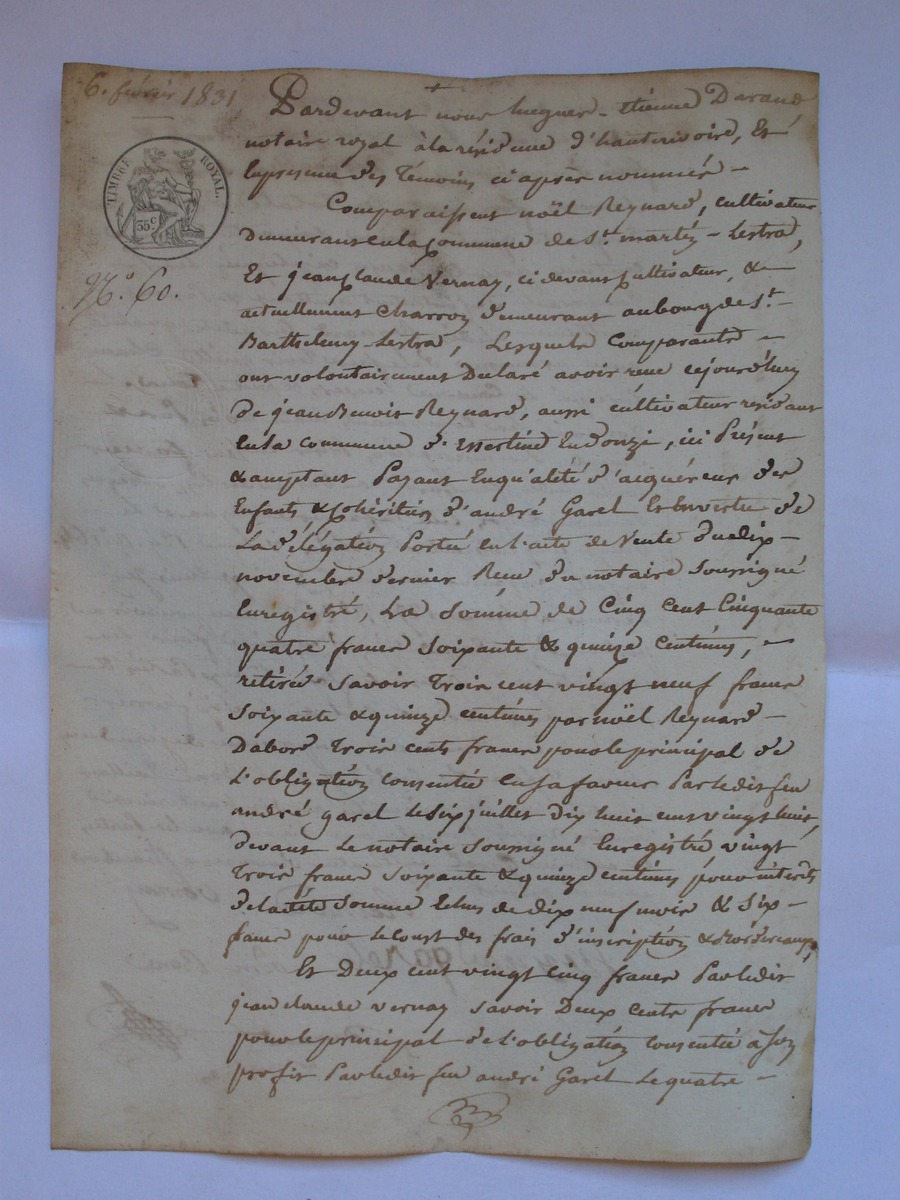 6. février 1831
Pardevant nous hugues-étienne Durand
notaire royal à la résidence d'hauterivoire, Et
la presence des Témoins ci après nommés -
TIMBRE ROYAL.
35 c
N.o 60.
Comparaissent noël Reynard, cultivateur
Demeurant en la Commune de St. martin-Lestra,
Et jean claude Vernay, ci devant cultivateur, &
actuellement Charron demeurant au bourg de St.
Barthelemy-Lestra, Lesquels Comparants -
ont volontairement Déclaré avoir reçu cejourd'huy
de jean Benoit Reynard, aussi cultivateur résidant
En la commune d'Essertine En Donzi, ici Présent
& acceptant Payant En qualité d'acquéreur des
Enfants & Cohéritiers d'andré Garel Et En vertu de
La délégation Portée en l'acte de Vente du dix -
novembre dernier Reçu du notaire soussigné
Enregistré, La Somme de Cinq Cent Cinquante
quatre francs Soixante & quinze centimes, -
retirés Savoir Trois cent vingt neuf francs
Soixante & quinze centimes par noël Reynard -
Dabord Trois cents francs pour le principal de
L'obligation consentie en sa faveur Par ledit feu
andré Garel le six juillet Dix huit cent vingt huit,
devant Le notaire soussigné Enregistré vingt
Trois francs Soixante & quinze centimes pour intérêts
de ladite Somme Echus de dix neuf mois & Six -
francs pour le Cout des frais d'inscription & Bordereaux,
Et Deux cent vingt cinq francs Par ledit
jean claude Vernay Savoir Deux Cents francs
pour le principal de L'obligation consentie à Son
profit Par ledit feu andré Garel Le quatre -